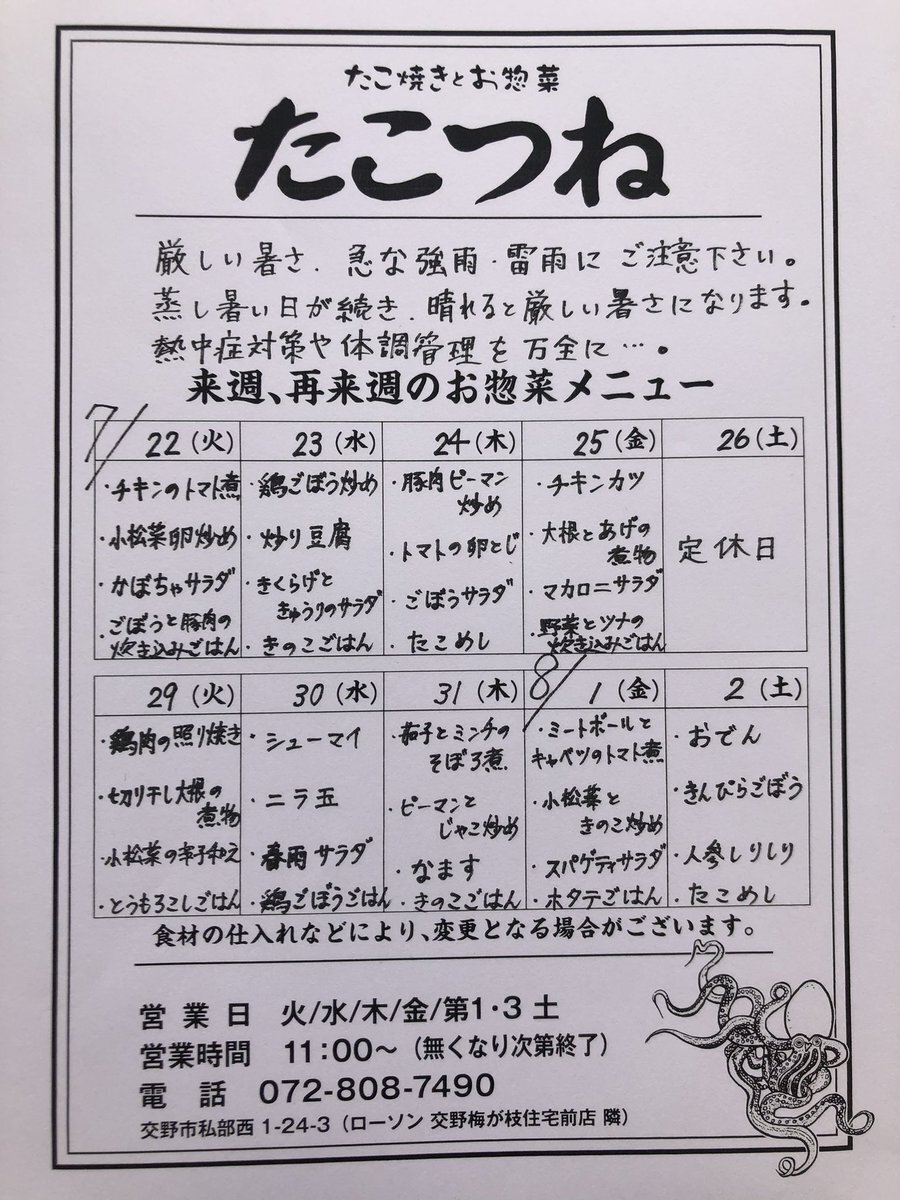 たこ焼きとお惣菜
たこつね
厳しい暑さ、急な強雨・雷雨にご注意下さい。
蒸し暑い日が続き、晴れると厳しい暑さになります。
熱中症対策や体調管理を万全に…。
来週、再来週のお惣菜メニュー
7/
22(火)
・チキンのトマト煮
・小松菜卵炒め
・かぼちゃサラダ
・ごぼうと豚肉の
炊き込みごはん
23(水)
・鶏ごぼう炒め
・炒り豆腐
・きくらげと
きゅうりのサラダ
・きのこごはん
24(木)
・豚肉ピーマン
炒め
・トマトの卵とじ
・ごぼうサラダ
・たこめし
25(金)
・チキンカツ
・大根とあげの
煮物
・マカロニサラダ
・野菜とツナの
炊き込みごはん
26(土)
定休日
29(火)
・鶏肉の照り焼き
・切り干し大根の
煮物
・小松菜の辛子和え
・とうもろこしごはん
30(水)
・シューマイ
・ニラ玉
・春雨サラダ
・鶏ごぼうごはん
31(木)
・茄子とミンチの
そぼろ煮
・ピーマンと
じゃこ炒め
・なます
・きのこごはん
8/
1(金)
・ミートボールと
キャベツのトマト煮
・小松菜と
きのこ炒め
・スパゲティサラダ
・ホタテごはん
2(土)
・おでん
・きんぴらごぼう
・人参しりしり
・たこめし
食材の仕入れなどにより、変更となる場合がございます。
営業日 火/水/木/金/第1・3土
営業時間 11:00～(無くなり次第終了)
電話 072-808-7490
交野市私部西1-24-3(ローソン 交野梅が枝住宅前店 隣)